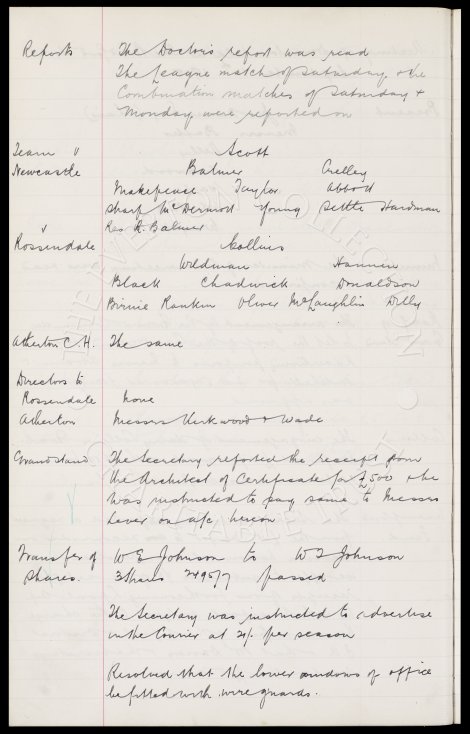 Reports The Doctor's report was read
The League match of Saturday, & the
Combination matches of Saturday &
Monday were reported on
Team v Scott
Newcastle Balmer Crelley
Makepeace Taylor Abbott
Sharp McDermott Young Settle Hardman
Res R. Balmer
v
Rossendale Collins
Wildman Hannen
Black Chadwick Donaldson
Birnie Rankin Oliver McLaughlin Dilly
Atherton C.H. The same
Directors to
Rossendale none
Atherton Messrs Kirkwood & Wade
Grandstand The Secretary reported the receipt from
the Architect of Certificate for £500 & he
was instructed to pay same to Messrs
on a/c hereon
Transfer of W E Johnson to W J Johnson
Shares. 3 Shares 2495/7 passed
The Secretary was instructed to advertise
in the Courier at per season
Resolved that the lower windows of office
be fitted with wire guards.